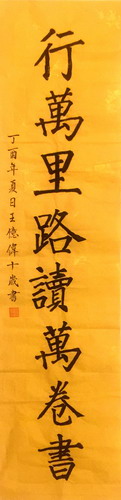 行萬里路讀萬卷書
丁酉年夏日王億偉十歲書